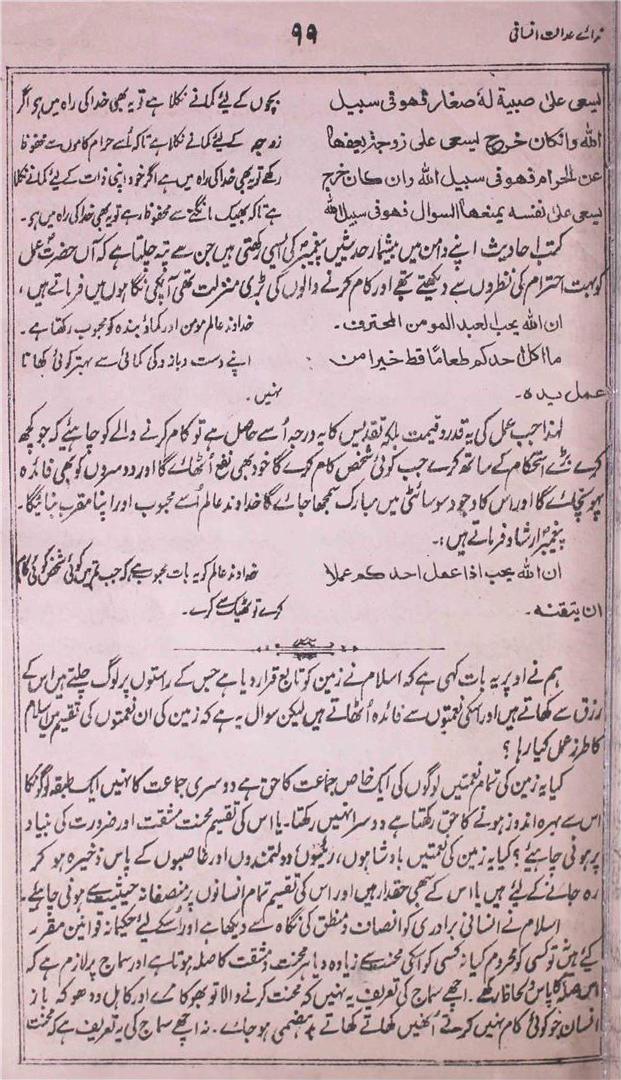 ندائے عدالت انسانی
۹۹
یسعی علیٰ صبیة لهٗ صغار فھو فی سبیل
بچوں کے لیٔے کمانے نکلا ہے تو یہ بھی خدا کی راہ میں ہو اگر
الله وانکان خرج یسعی علی زوجة یعفھا
زوجہ کے لیٔے کمانے نکلا ہے تاکہ اُسے حرام کاموں سے محفوظ
عن الحرام فھو فی سبیل الله وان کان خرج
رکھے تو یہ بھی خدا کی راہ میں ہے اگر خود اپنی ذات کے لیٔے کمانے نکلا
یسعی علیٰ نفسه یمنعھا السوال فھو فی سبیل الله
ہے تاکہ بھیک مانگنے سے محفوظ رہے تو یہ بھی خدا کی راہ میں ہو۔
کتب احادیث اپنے دامن میں بیشمار حدیثیں پیغمبرؐ کی ایسی رکھتی ہیں جن سے پتہ چلتا ہے کہ آں حضرتؐ عمل
کو بہت احترام کی نظروں سے دیکھتے تھے اور کام کرنے والوں کی بڑی منزلت تھی آپکی نگاہوں میں فرماتے ہیں،
ان الله یحب العبد المومن المحترف۔
خداوند عالم مومن اور کماؤ بندہ کو محبوب رکھتا ہے۔
ما اکل احدکم طعامًا قط خیرا من
اپنے دست و بازو کی کمائی سے بہتر کوئی کھاتا
عمل یدہ۔
نہیں۔
لہٰذا جب عمل کی یہ قدر و قیمت بلکہ تقدیس کا یہ درجہ اُسے حاصل ہے تو کام کرنے والے کو چاہیٔے کہ جو کچھ
کرے بڑے استحکام کے ساتھ کرے جب کوئی شخص کام کرے گا خود بھی نفع اُٹھائے گا اور دوسروں کو بھی فائدہ
پہونچائے گا اور اس کا وجود سوسائٹی میں مبارک سمجھا جائے گا خداوند عالم اُسے محبوب اور اپنا مقرب بنائیگا۔
پیغمبرؐ ارشاد فرماتے ہیں:۔
ان الله یحب اذا عمل احدکم عملا
خداوند عالم کو یہ بات محبوب ہے کہ جب تم میں کوئی شخص کوئی کام
ان یتقنه۔
کرے تو ٹھیک سے کرے۔
ہم نے اوپر یہ بات کہی ہے کہ اسلام نے زمین کو تابع قرار دیا ہے جس کے راستوں پر لوگ چلتے ہیں اس کے
رزق سے کھاتے ہیں اور اسکی نعمتوں سے فائدہ اُٹھاتے ہیں لیکن سوال یہ ہے کہ زمین کی ان نعمتوں کی تقسیم میں اسلام
کا طرز عمل کیا رہا؟
کیا یہ زمین کی تمام نعمتیں لوگوں کی ایک خاص جماعت کا حق ہے دوسری جماعت کا نہیں ایک طبقہ لوگوں کا
اس سے بہرہ اندوز ہونے کا حق رکھتا ہے دوسرا نہیں رکھتا۔ یا اس کی تقسیم محنت مشقت اور ضرورت کی بنیاد
پر ہونی چاہیٔے؟ کیا یہ زمین کی نعمتیں بادشاہوں، رئیسوں دولتمندوں اور غاصبوں کے پاس ذخیرہ ہو کر
رہ جانے کے لیٔے ہیں یا اس کے سبھی حقدار ہیں اور اس کی تقسیم تمام انسانوں پر منصفانہ حیثیت سے ہونی چاہیٔے۔
اسلام نے انسانی برادری کو انصاف و منطق کی نگاہ سے دیکھا ہے اور اُسکے لیٔے حکیمانہ قوانین مقرر
کیٔے ہیں نہ تو کسی کو محروم کیا نہ کسی کو اسکی محنت سے زیادہ دیا ہر محنت و مشقت کا صلہ ہوتا ہے اور سماج پر لازم ہے کہ
اس صلہ کا پاس و لحاظ رکھے۔ اچھے سماج کی تعریف یہ نہیں کہ محنت کرنے والا تو بھوکا مرے اور کاہل و دھوکہ باز
انسان جو کوئی کام نہیں کرتے اُنھیں کھاتے کھاتے بدہضمی ہو جائے۔ نہ اچھے سماج کی یہ تعریف ہے کہ محنت